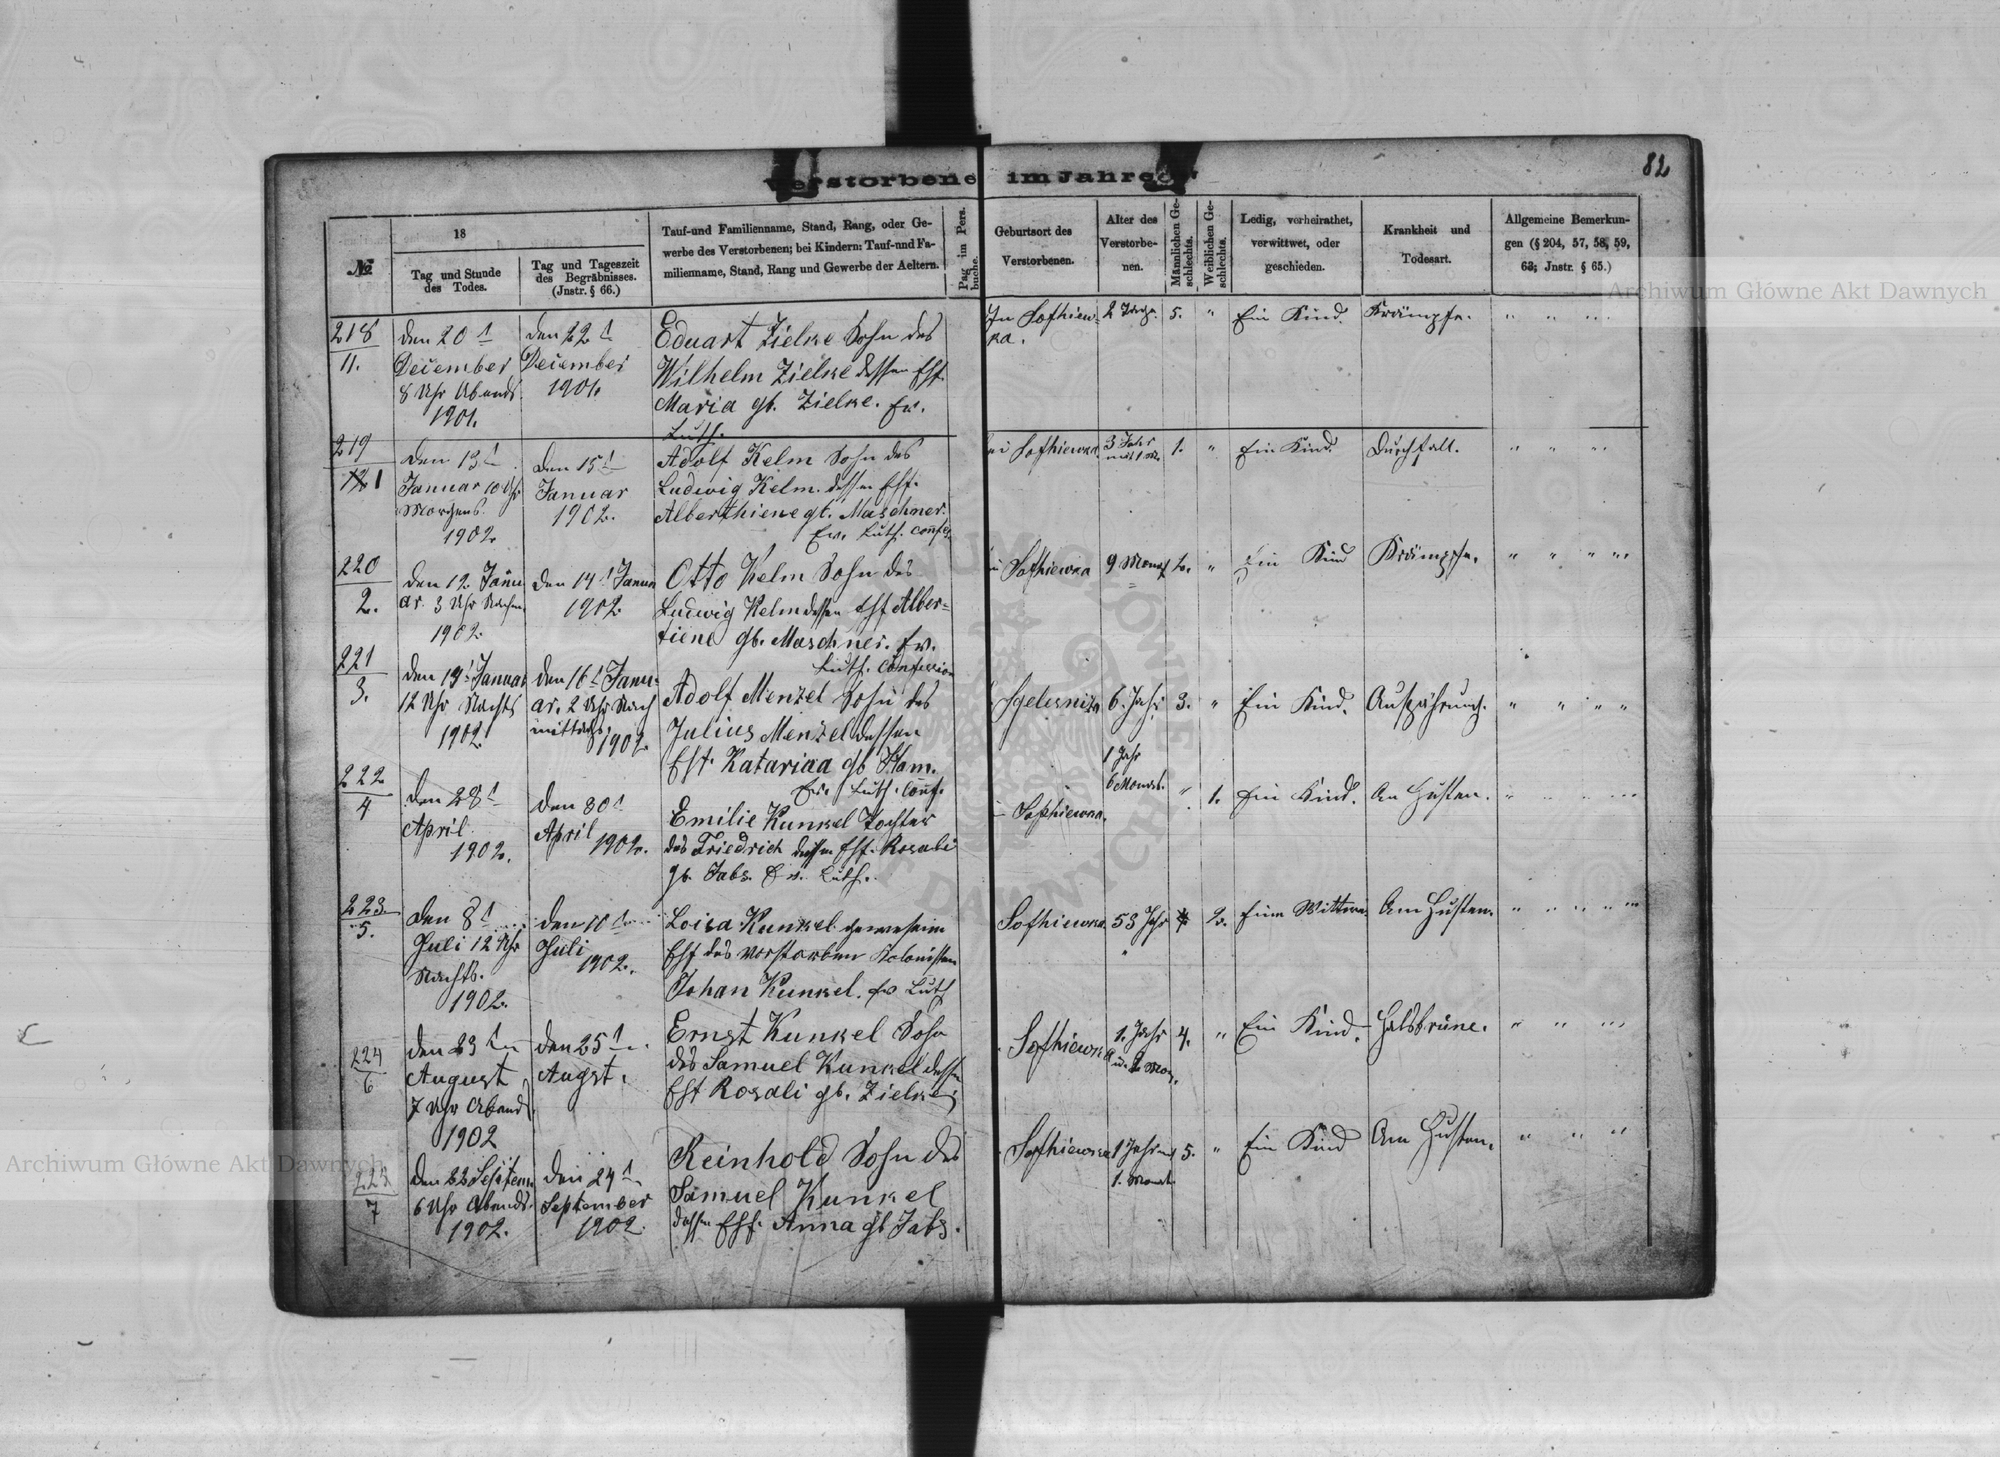 82
Verstorbene im Jahre
№
18
Tag und Stunde
des Todes.
Tag und Tageszeit
des Begräbnisses.
(Jnstr. § 66.)
Tauf-und Familienname, Stand, Rang, oder Ge-
werbe des Verstorbenen; bei Kindern: Tauf-und Fa-
milienname, Stand, Rang und Gewerbe der Aeltern.
Pag im Pers.
buche.
Geburtsort des
Verstorbenen.
Alter des
Verstorbe-
nen.
Männlichen Ge-
schlechts.
Weiblichen Ge-
schlechts.
Ledig, verheirathet,
verwittwet, oder
geschieden.
Krankheit und
Todesart.
Allgemeine Bemerkun-
gen (§ 204, 57, 58, 59,
63; Jnstr. § 65.)
218
11.
den 20 t
December
8 Uhr Abends
1901.
den 22 t
December
1901.
Eduart Zielke Sohn des
Wilhelm Zielke dessen Ehf.
Maria gb. Zielke. Ev.
Luth.
In Sofhiew-
ka.
2 Tage.
5.
"
Ein Kind.
Krämpfe.
219
1
den 13 t
Januar 10 Uhr
Morgens
1902
den 15 t
Januar
1902.
Adolf Kelm Sohn des
Ludwig Kelm. dessen Ehf.
Alberthiene gb. Maschner.
Ev. Luth. Confes.
Sofhiewka.
3 Jahr
1.
"
Ein Kind.
Durchfall.
220
2.
den 12. Janu
ar. 3 Uhr Nachm.
1902.
den 14 t Janua
1902.
Otto Kelm Sohn des
Ludwig Kelm dessen Ehf Alber-
tiene gb. Maschner. Ev.
Luth. Confession
Sofhiewka
9 Monat
2.
"
Ein Kind
Krämpfe.
221
3.
den 14 t Januar
12 Uhr Nachts
1902
den 16 t Janu-
ar. 2 Uhr Nach
mittags
1902
Adolf Menzel Sohn des
Julius Menzel dessen
Ehf. Katariaa gb Klam.
Ev. Luth. Conf.
6. Jahr
3.
"
Ein Kind.
222
4
den 28 t
April
1902.
den 30 t
April
1902.
Emilie Kunkel Tochter
des Friedrich dessen Ehf. Rosali
gb. Jabs. Ev. Luth.
Sophiewka.
1 Jahr
6 Monat.
"
1.
Ein Kind.
Am Husten.
223
5.
den 8 t
Juli 12 Uhr
Nachts.
1902.
den 10 t
Juli
1902.
Loisa Kunkel gewesene
Ehf des verstorben Kolonisten
Johan Kunkel. Ev Luth
Sofhiewka
53 Jahr
2.
Eine Wittwe
Am Husten.
224
6
den 23 t
August
7 Uhr Abends.
1902
den 25 t
Augst.
Ernst Kunkel Sohn
des Samuel Kunkel dessen
Ehf Rosali gb. Zielke
Sofhiewka
1. Jahr
u. 2 Mon.
4.
"
Ein Kind.
Halsbrüne.
225
7
den 22 Septem
6 Uhr Abends.
1902.
den 24 t
September
1902.
Reinhold Sohn des
Samuel Kunkel
dessen Ehf. Anna gb Jabs.
Sofhiewka
1 Jahr und
1. Monat
5.
"
Ein Kind
Am Husten.
Archiwum Główne Akt Dawnych
Archiwum Główne Akt Dawnych